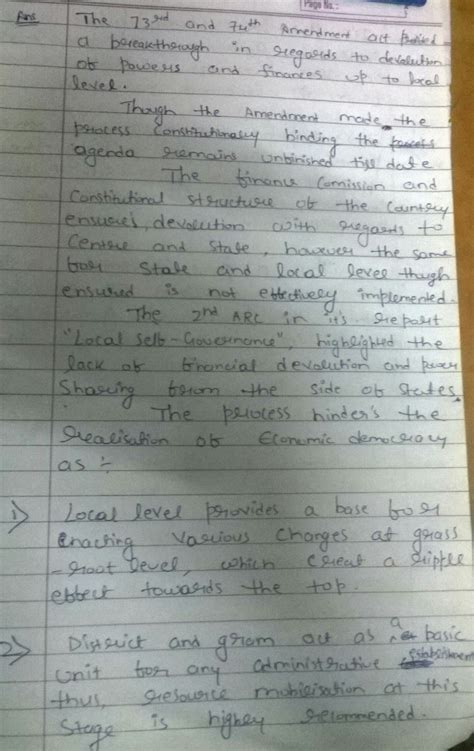 Page No.:
Ans The 73rd and 74th Amendment act
a breakthrough in regards to devolution
of powers and finances up to local
level.
Though the Amendment made the
process Constitutionaly binding the process
agenda remains unfinished till date
The finance Comission and
Constitutional structure of the Country
ensure's, devolution with regards to
Centre and State, however the same
for State and local level though
ensured is not effectively implemented.
The 2nd ARC in it's report
"Local Self-Governance", highlighted the
lack of financial devolution and power
Sharing from the side of States.
The process hinder's the
realisation of Economic democracy
as :-
1) Local level provides a base for
enacting Various Changes at grass
-root level, which creat a ripple
effect towards the top.
2) District and gram act as a basic
unit for any administrative establishment
thus, resource mobilisation at this
Stage is highly recommended.